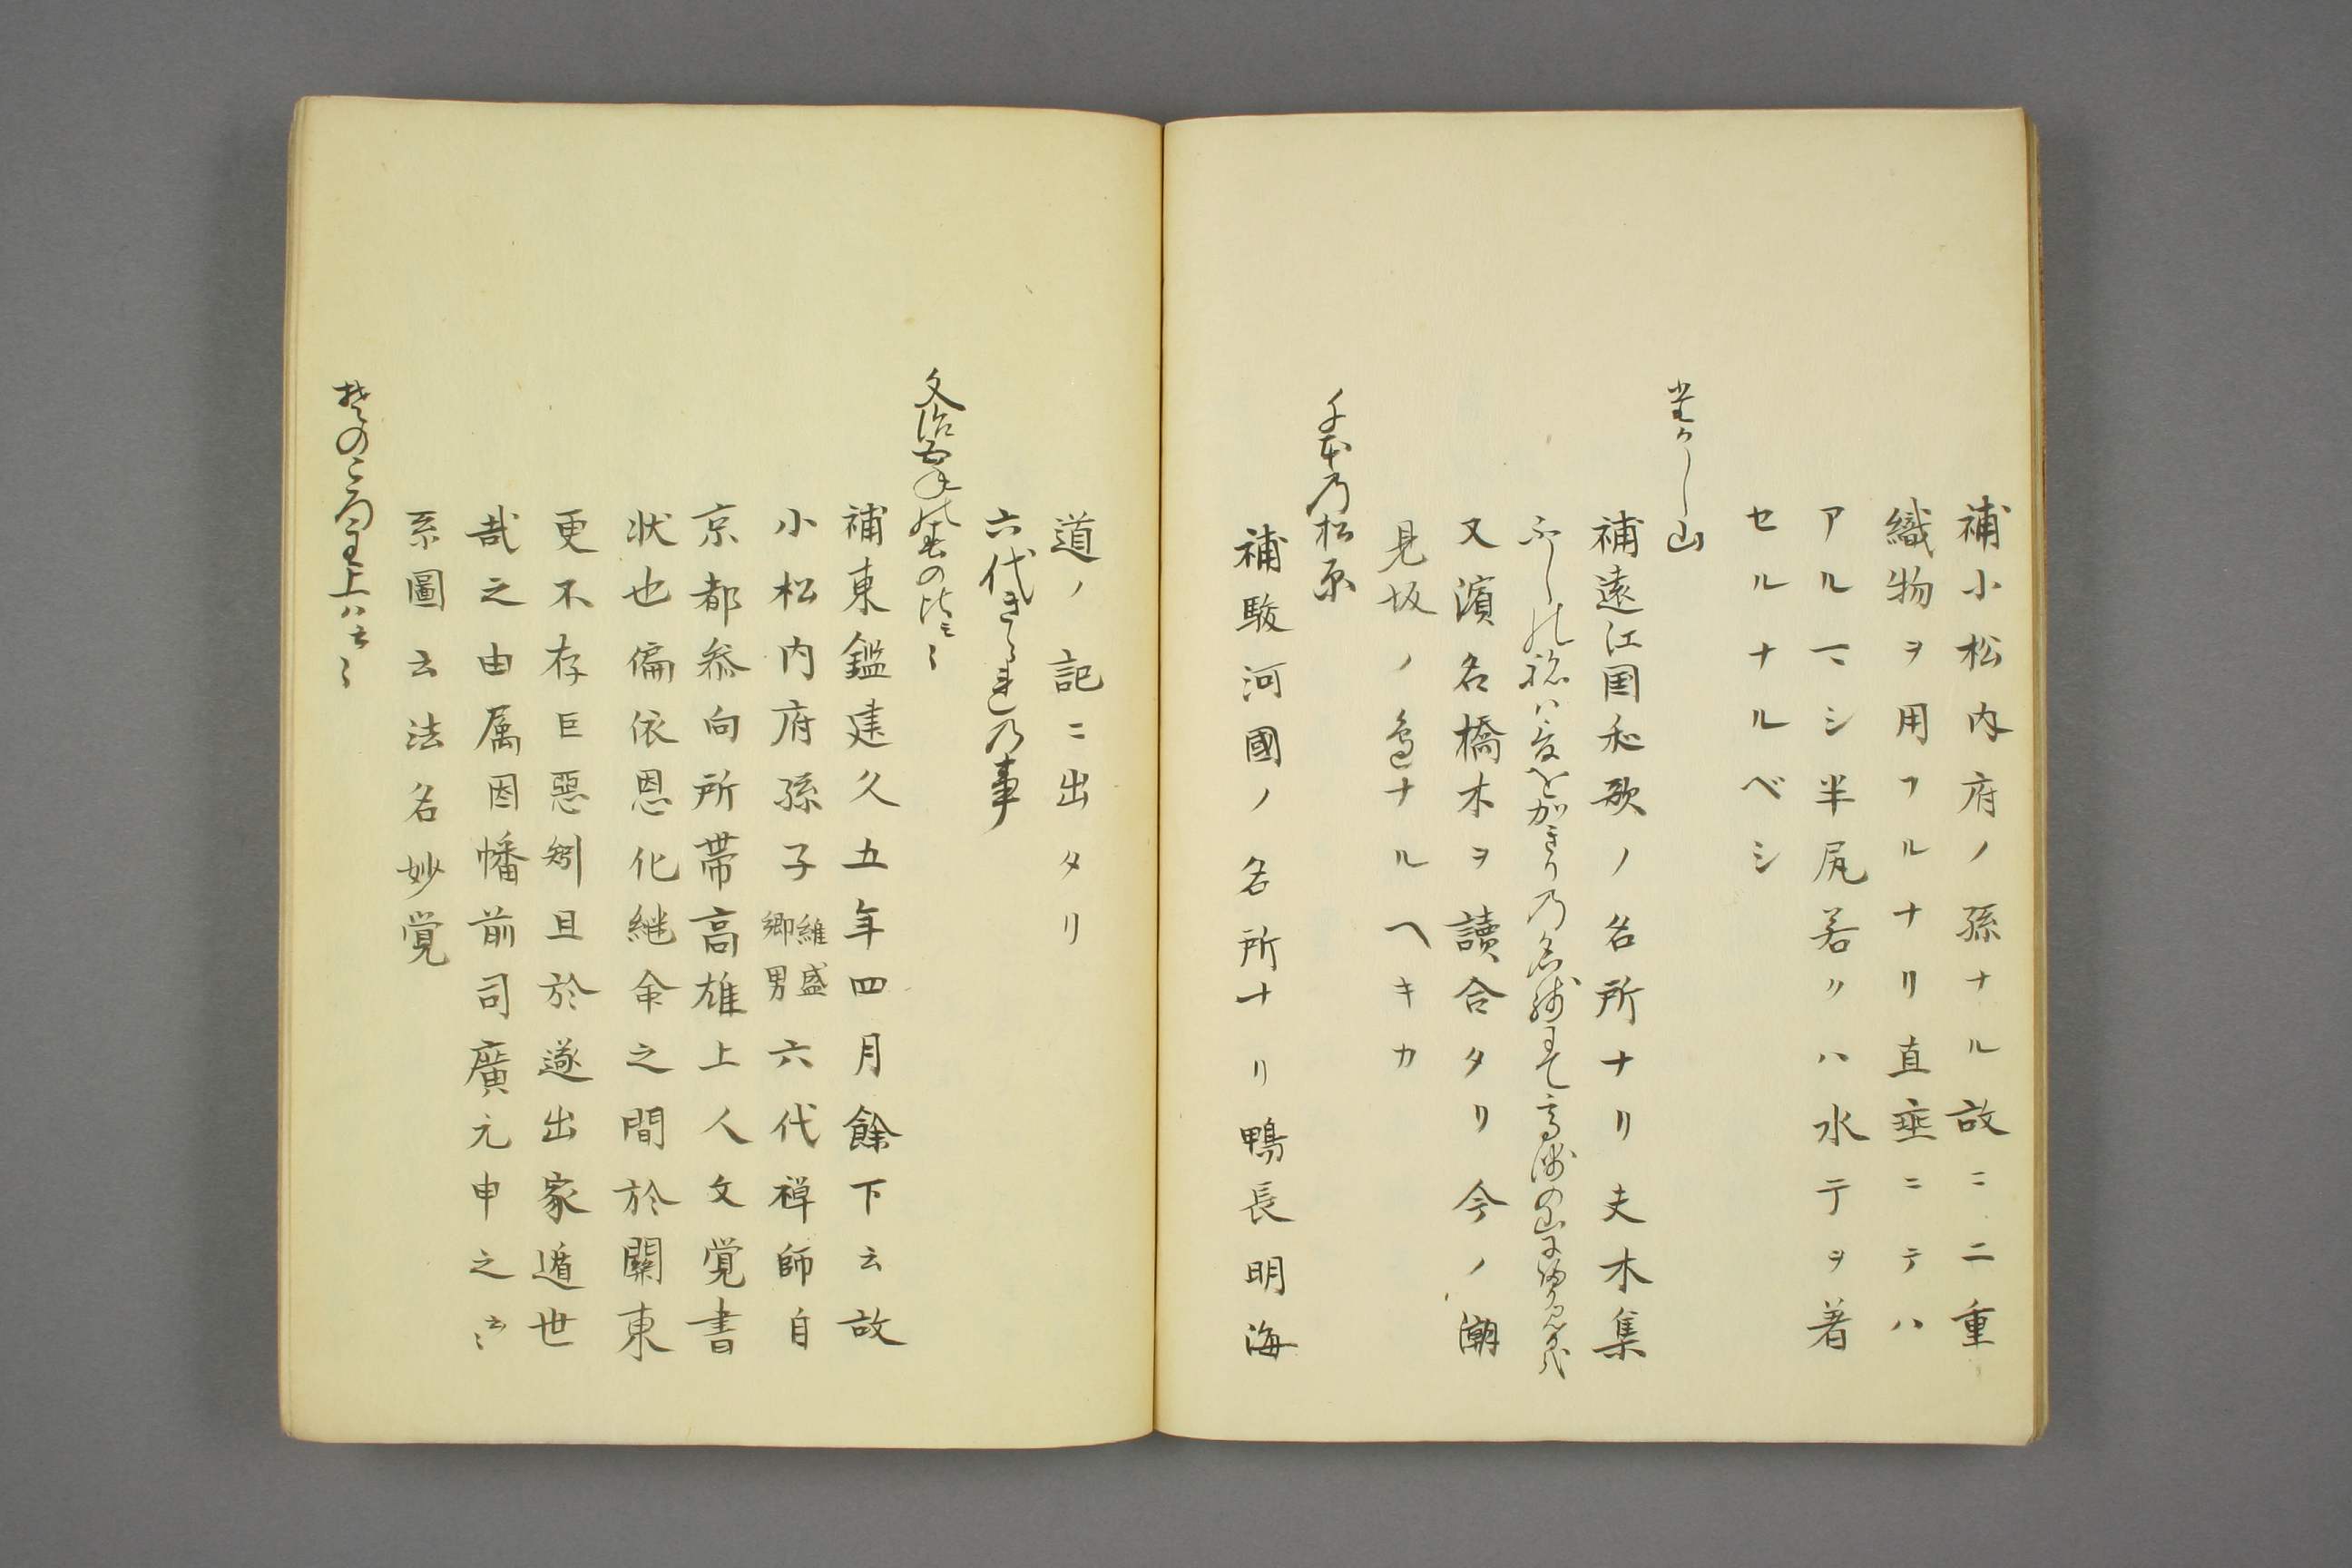 補小松内府ノ孫ナル故ニ二重
織物ヲ用フルナリ直垂ニテハ
アルマシ半尻若クハ水干ヲ著
セルナルベシ
山
補遠江国和歌ノ名所ナリ夫木集
又濱名橋木ヲ讀合タリ今ノ潮
見坂ノ邊ナルヘキカ
千本乃松原
補駿河國ノ名所ナリ鴨長明海
道ノ記ニ出タリ
六代きられ乃事
文治五年の
補東鑑建久五年四月餘下云故
小松内府孫子維盛卿男六代禅師自
京都参向所帯高雄上人文覚書
状也偏依恩化継命之間於關東
更不存巨惡剏且於遂出家遁世
哉之由属因幡前司廣元申之云〻
系圖云法名妙覚
主上ハ云〻